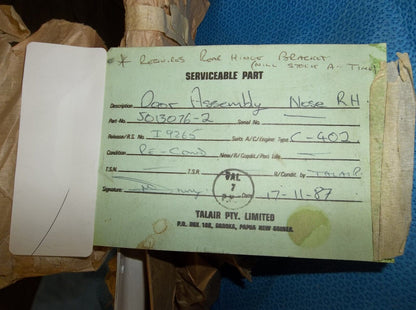 * REQUIRES REAR HINGE BRACKET
(NILL STOCK A TIME)
SERVICEABLE PART
Description Door Assembly Nose RH.
Part-No. 5013076-2 Serial No. —
Release/R.S. No. I 9265 Suits A/C/Engine Type C-402
Condition RE-COND New/R/Condit./Part Life —
T.S.N. — T.S.R. — R/Condit. by TALAIR
Signature Date 17-11-87
TAL
7
TALAIR PTY. LIMITED
P.O. BOX 108, GOROKA, PAPUA NEW GUINEA.